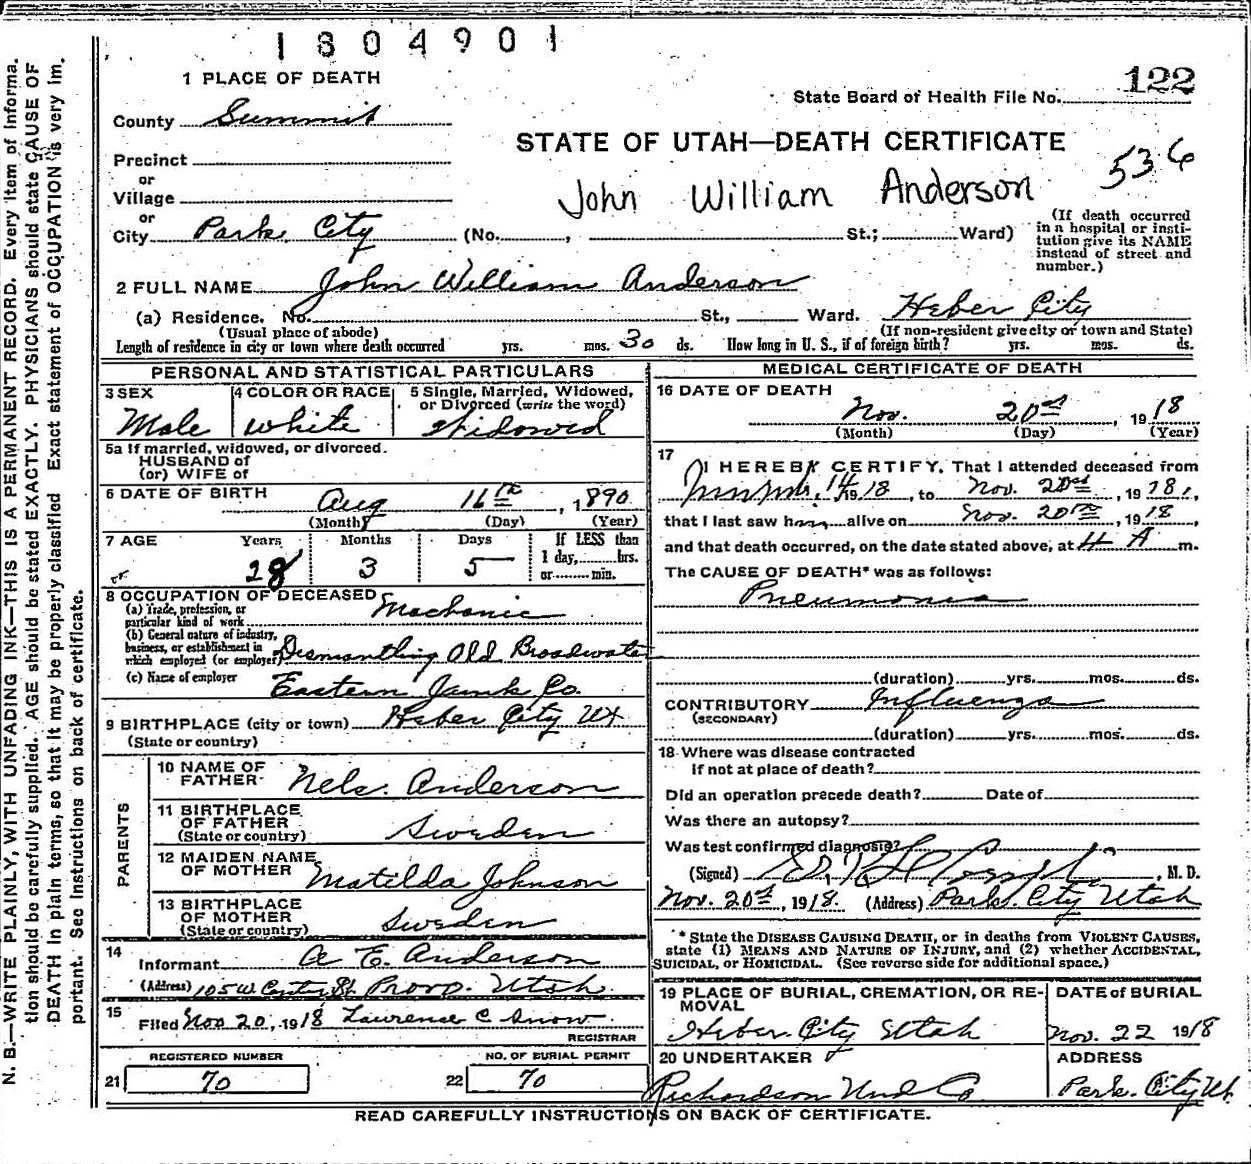 1804901
1 PLACE OF DEATH
State Board of Health File No. 122
County Summit
STATE OF UTAH—DEATH CERTIFICATE
536
Precinct
or
Village
John William Anderson
or
City Park City (No. , St.; Ward)
(If death occurred
in a hospital or insti-
tution give its NAME
instead of street and
number.)
2 FULL NAME John William Anderson
(a) Residence. No. St., Ward. Heber City
(Usual place of abode) (If non-resident give city or town and State)
Length of residence in city or town where death occurred yrs. mos. 30 ds. How long in U. S., if of foreign birth? yrs. mos. ds.
PERSONAL AND STATISTICAL PARTICULARS
3 SEX
Male
4 COLOR OR RACE
White
5 Single, Married, Widowed,
or Divorced (write the word)
Widowed
5a If married, widowed, or divorced.
HUSBAND of
(or) WIFE of
6 DATE OF BIRTH
Aug 16th, 1890
(Month) (Day) (Year)
7 AGE Years Months Days If LESS than
1 day, hrs.
or min.
28 3 5
8 OCCUPATION OF DECEASED
(a) Trade, profession, or
particular kind of work Mechanic
(b) General nature of industry,
business, or establishment in
which employed (or employer) Dismantling Old Broadwater
(c) Name of employer Eastern Junk Co.
9 BIRTHPLACE (city or town) Heber City Ut
(State or country)
PARENTS
10 NAME OF
FATHER Nels. Anderson
11 BIRTHPLACE
OF FATHER
(State or country) Sweden
12 MAIDEN NAME
OF MOTHER Matilda Johnson
13 BIRTHPLACE
OF MOTHER
(State or country) Sweden
14
Informant A E. Anderson
(Address) 105 W Center St. Provo. Utah
15
Filed Nov 20, 1918 Lawrence C. Snow
REGISTRAR
REGISTERED NUMBER NO. OF BURIAL PERMIT
21 70 22 70
MEDICAL CERTIFICATE OF DEATH
16 DATE OF DEATH
Nov. 20st, 1918
(Month) (Day) (Year)
17
I HEREBY CERTIFY, That I attended deceased from
14, 1918, to Nov. 20st, 1918,
that I last saw him alive on Nov. 20th, 1918,
and that death occurred, on the date stated above, at 4 A m.
The CAUSE OF DEATH* was as follows:
Pneumonia
(duration) yrs. mos. ds.
CONTRIBUTORY Influenza
(SECONDARY)
(duration) yrs. mos. ds.
18 Where was disease contracted
if not at place of death?
Did an operation precede death? Date of
Was there an autopsy?
Was test confirmed diagnosis?
(Signed) , M. D.
Nov. 20st, 1918. (Address) Park City Utah
* State the DISEASE CAUSING DEATH, or in deaths from VIOLENT CAUSES,
state (1) MEANS AND NATURE OF INJURY, and (2) whether ACCIDENTAL,
SUICIDAL, or HOMICIDAL. (See reverse side for additional space.)
19 PLACE OF BURIAL, CREMATION, OR RE-
MOVAL
Heber City Utah
DATE of BURIAL
Nov. 22 1918
20 UNDERTAKER
Richardson Und Co
ADDRESS
Park. City Ut.
READ CAREFULLY INSTRUCTIONS ON BACK OF CERTIFICATE.
N. B.—WRITE PLAINLY, WITH UNFADING INK—THIS IS A PERMANENT RECORD. Every item of informa-
tion should be carefully supplied. AGE should be stated EXACTLY. PHYSICIANS should state CAUSE OF
DEATH in plain terms, so that it may be properly classified. Exact statement of OCCUPATION is very im-
portant. See instructions on back of certificate.